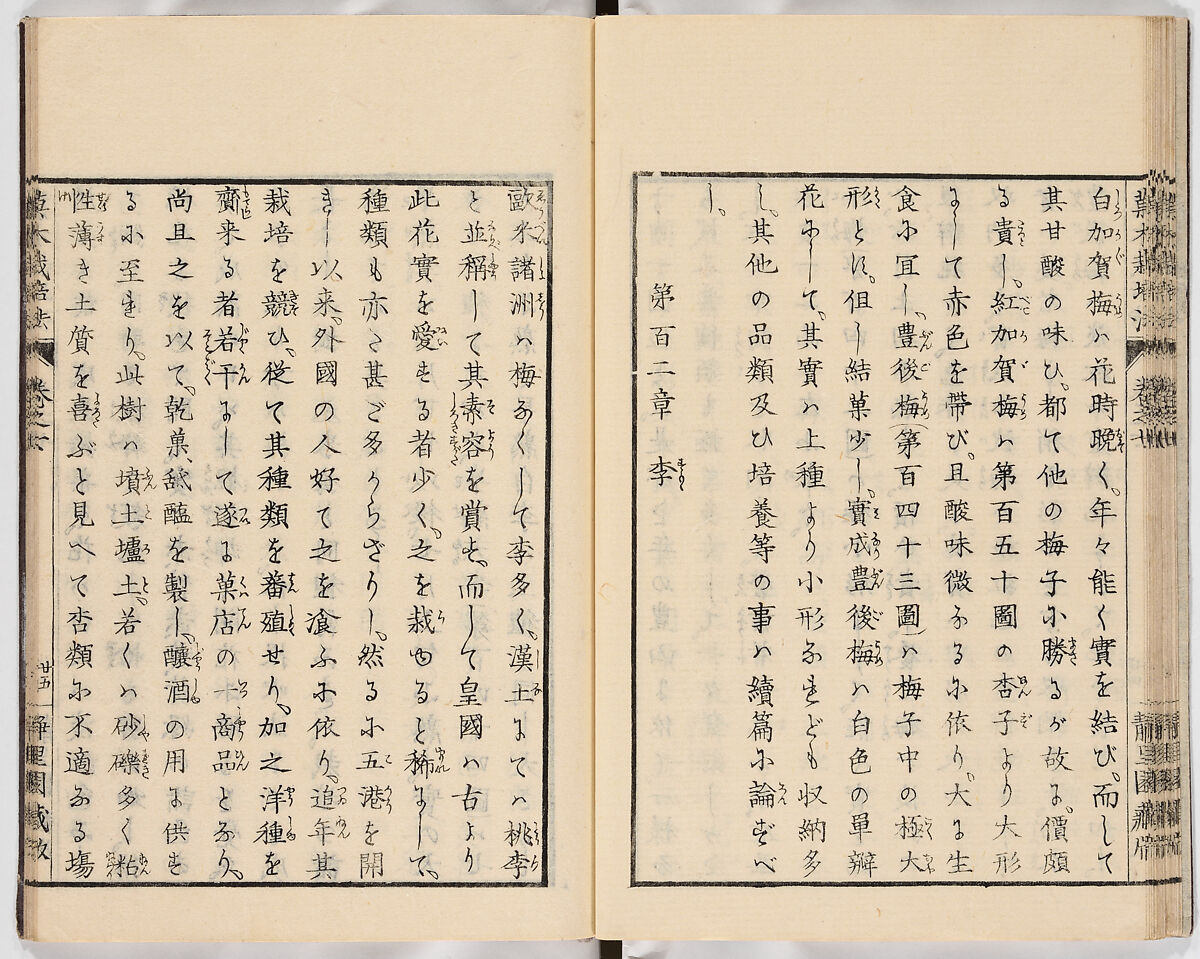 白加賀梅ハ花時晩く、年々能く實を結び、而して
其甘酸の味ひ、都て他の梅子に勝るが故に、價頗
る貴し、紅加賀梅ハ第百五十圖の杏子より大形
にして赤色を帯び、且酸味微なるに依り、大に生
食に冝し、豊後梅（第百四十三圖）ハ梅子中の極大
形とす。但し結菓少し、實成豊後梅ハ白色の單瓣
花にして、其實ハ上種より小形なれども収納多
し、其他の品類及ひ培養等の事ハ續篇に論ずべ
し。
第百二章 李
歐米諸洲ハ梅なくして李多く、漢土にてハ桃李
と並稱して其素容を賞す、而して皇國ハ古より
此花實を愛する者少く、之を栽ゆると稀にして、
種類も亦さ甚ご多からざりし、然るに五港を開
きし以来、外國の人好て之を飡ふに依り、追年其
栽培を競ひ、従て其種類を蕃殖せり、加之洋種を
齎来る者若干にて遂に菓店の一商品となり、
尚且之を以て、乾菓、舐醢を製し、釀酒の用に供す
るに至れり、此樹ハ墳土壚土、若くハ砂礫多く粘
性薄き土質を喜ぶと見へて杏類に不適なる塲
菓木栽培法 卷之七 廿五 静里園藏版